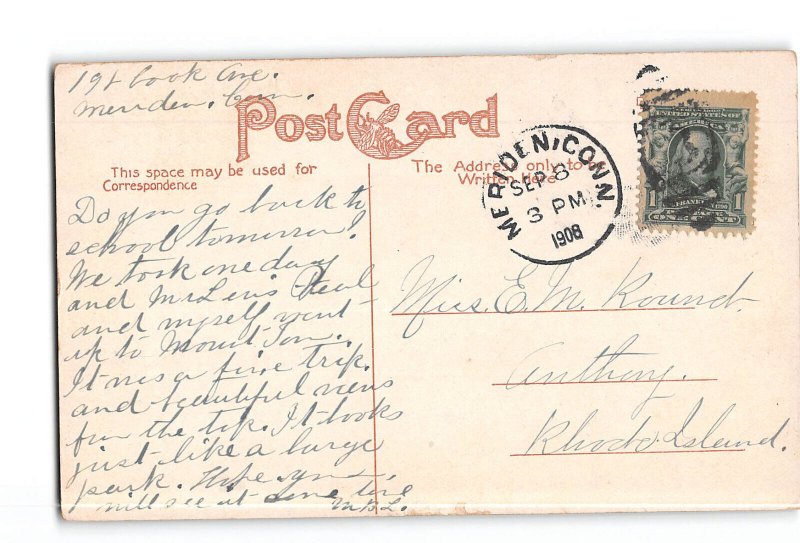 191 Cook Ave.
Meriden. Conn.
Post Card
This space may be used for
Correspondence
The Address only to be
Written Here
MERIDEN, CONN.
SEP 8
3 PM
1908
UNITED STATES OF
AMERICA
FRANKLIN
1 1
ONE CENT
Do you go back to
school tomorrow!
We took one day
and Mr. Lewis
and myself went
up to Mount Tom.
It was a fine trip.
and beautiful views
from the top. It looks
just like a large
park. Hope you
will see it some time
M.B.L.
Miss. E. M. Round.
Anthony.
Rhode Island.